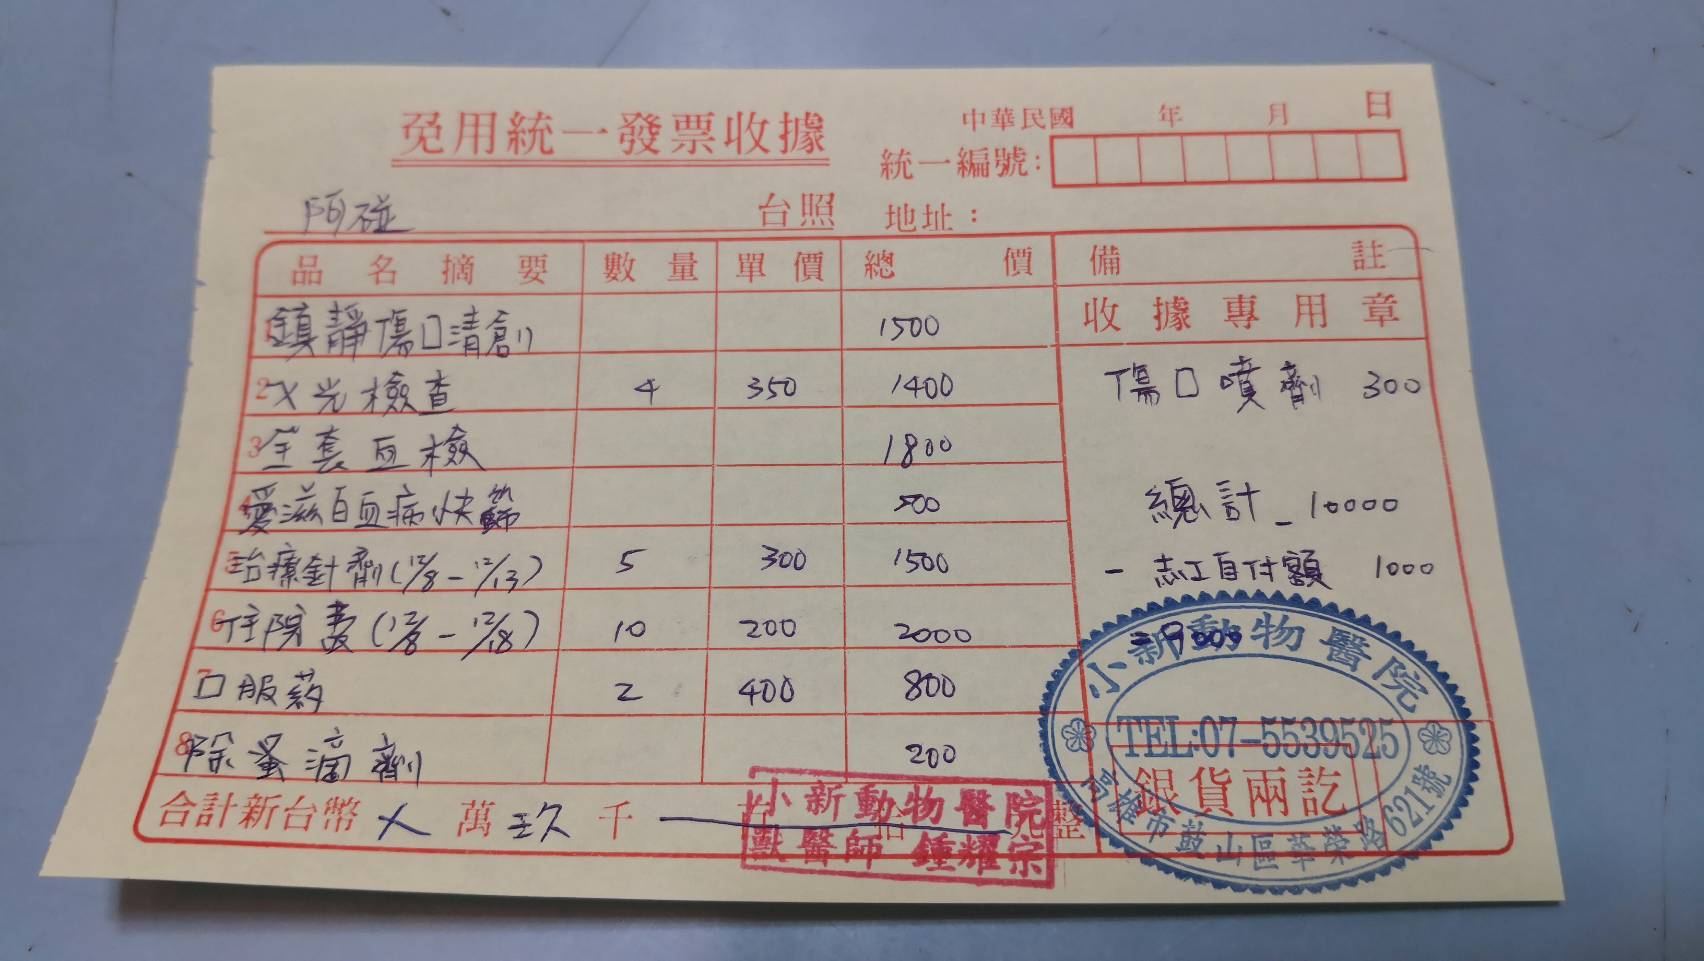 免用統一發票收據
中華民國 年 月 日
統一編號:
阿碰 台照 地址:
品名摘要 數量 單價 總價 備註
收據專用章
1 鎮靜傷口清創 1500
2 X光檢查 4 350 1400 傷口噴劑 300
3 全套血檢 1800
4 愛滋白血病快篩 500 總計 10000
5 治療針劑(12/8-12/13) 5 300 1500 - 志工自付額 1000
6 住院費(12/8-12/18) 10 200 2000 = 9000
7 口服葯 2 400 800
8 除蚤滴劑 200
合計新台幣 X 萬 玖 千 百 拾 元整
小新動物醫院
獸醫師 鍾耀宗
小新動物醫院
TEL:07-5539525
銀貨兩訖
高雄市鼓山區華榮路621號